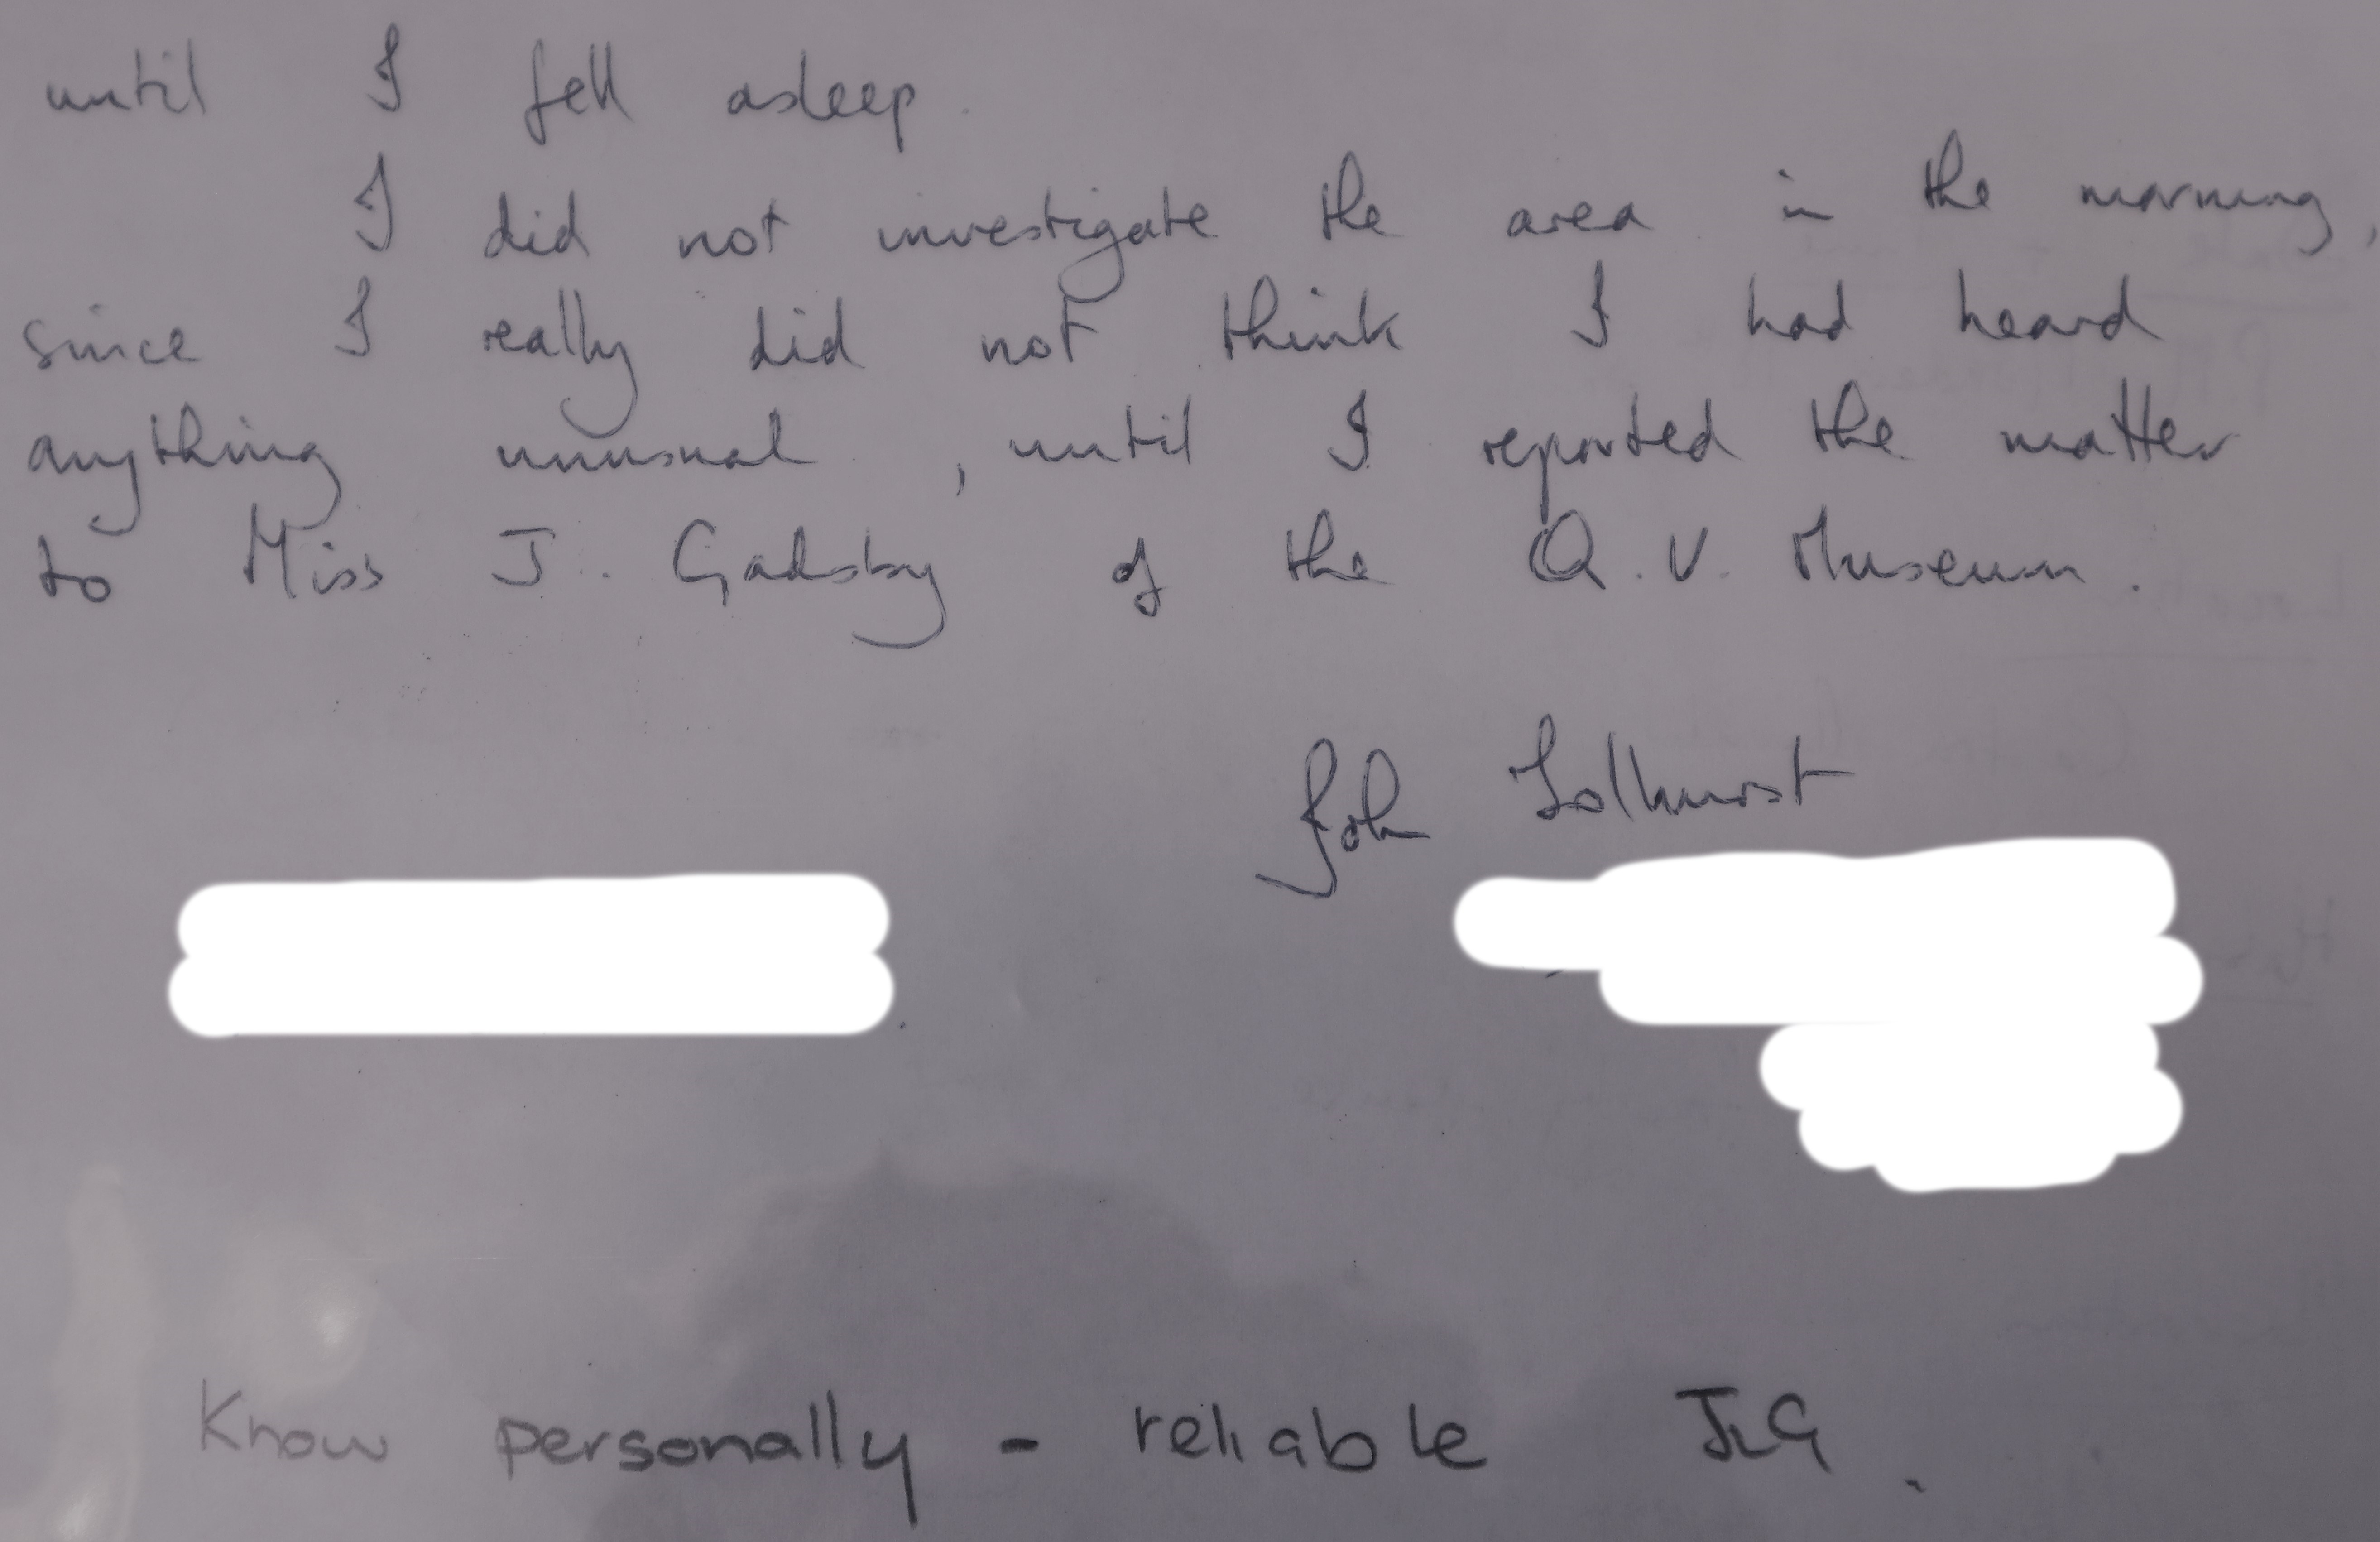 until I fell asleep.
I did not investigate the area in the morning,
since I really did not think I had heard
anything unusual, until I reported the matter
to Miss J. Gadsby of the Q.V. Museum.
John Tolhurst
Know personally - reliable JLG.